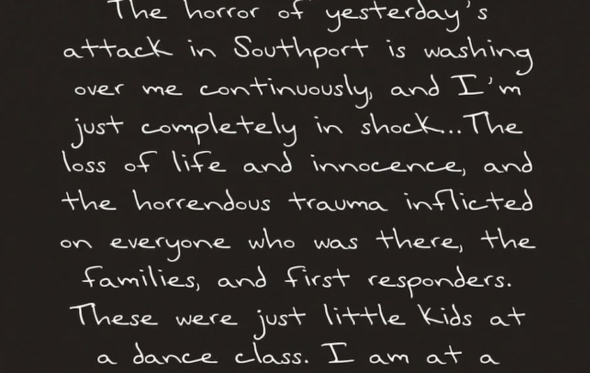 The horror of yesterday's
attack in Southport is washing
over me continuously, and I'm
just completely in shock...The
loss of life and innocence, and
the horrendous trauma inflicted
on everyone who was there, the
families, and first responders.
These were just little kids at
a dance class. I am at a